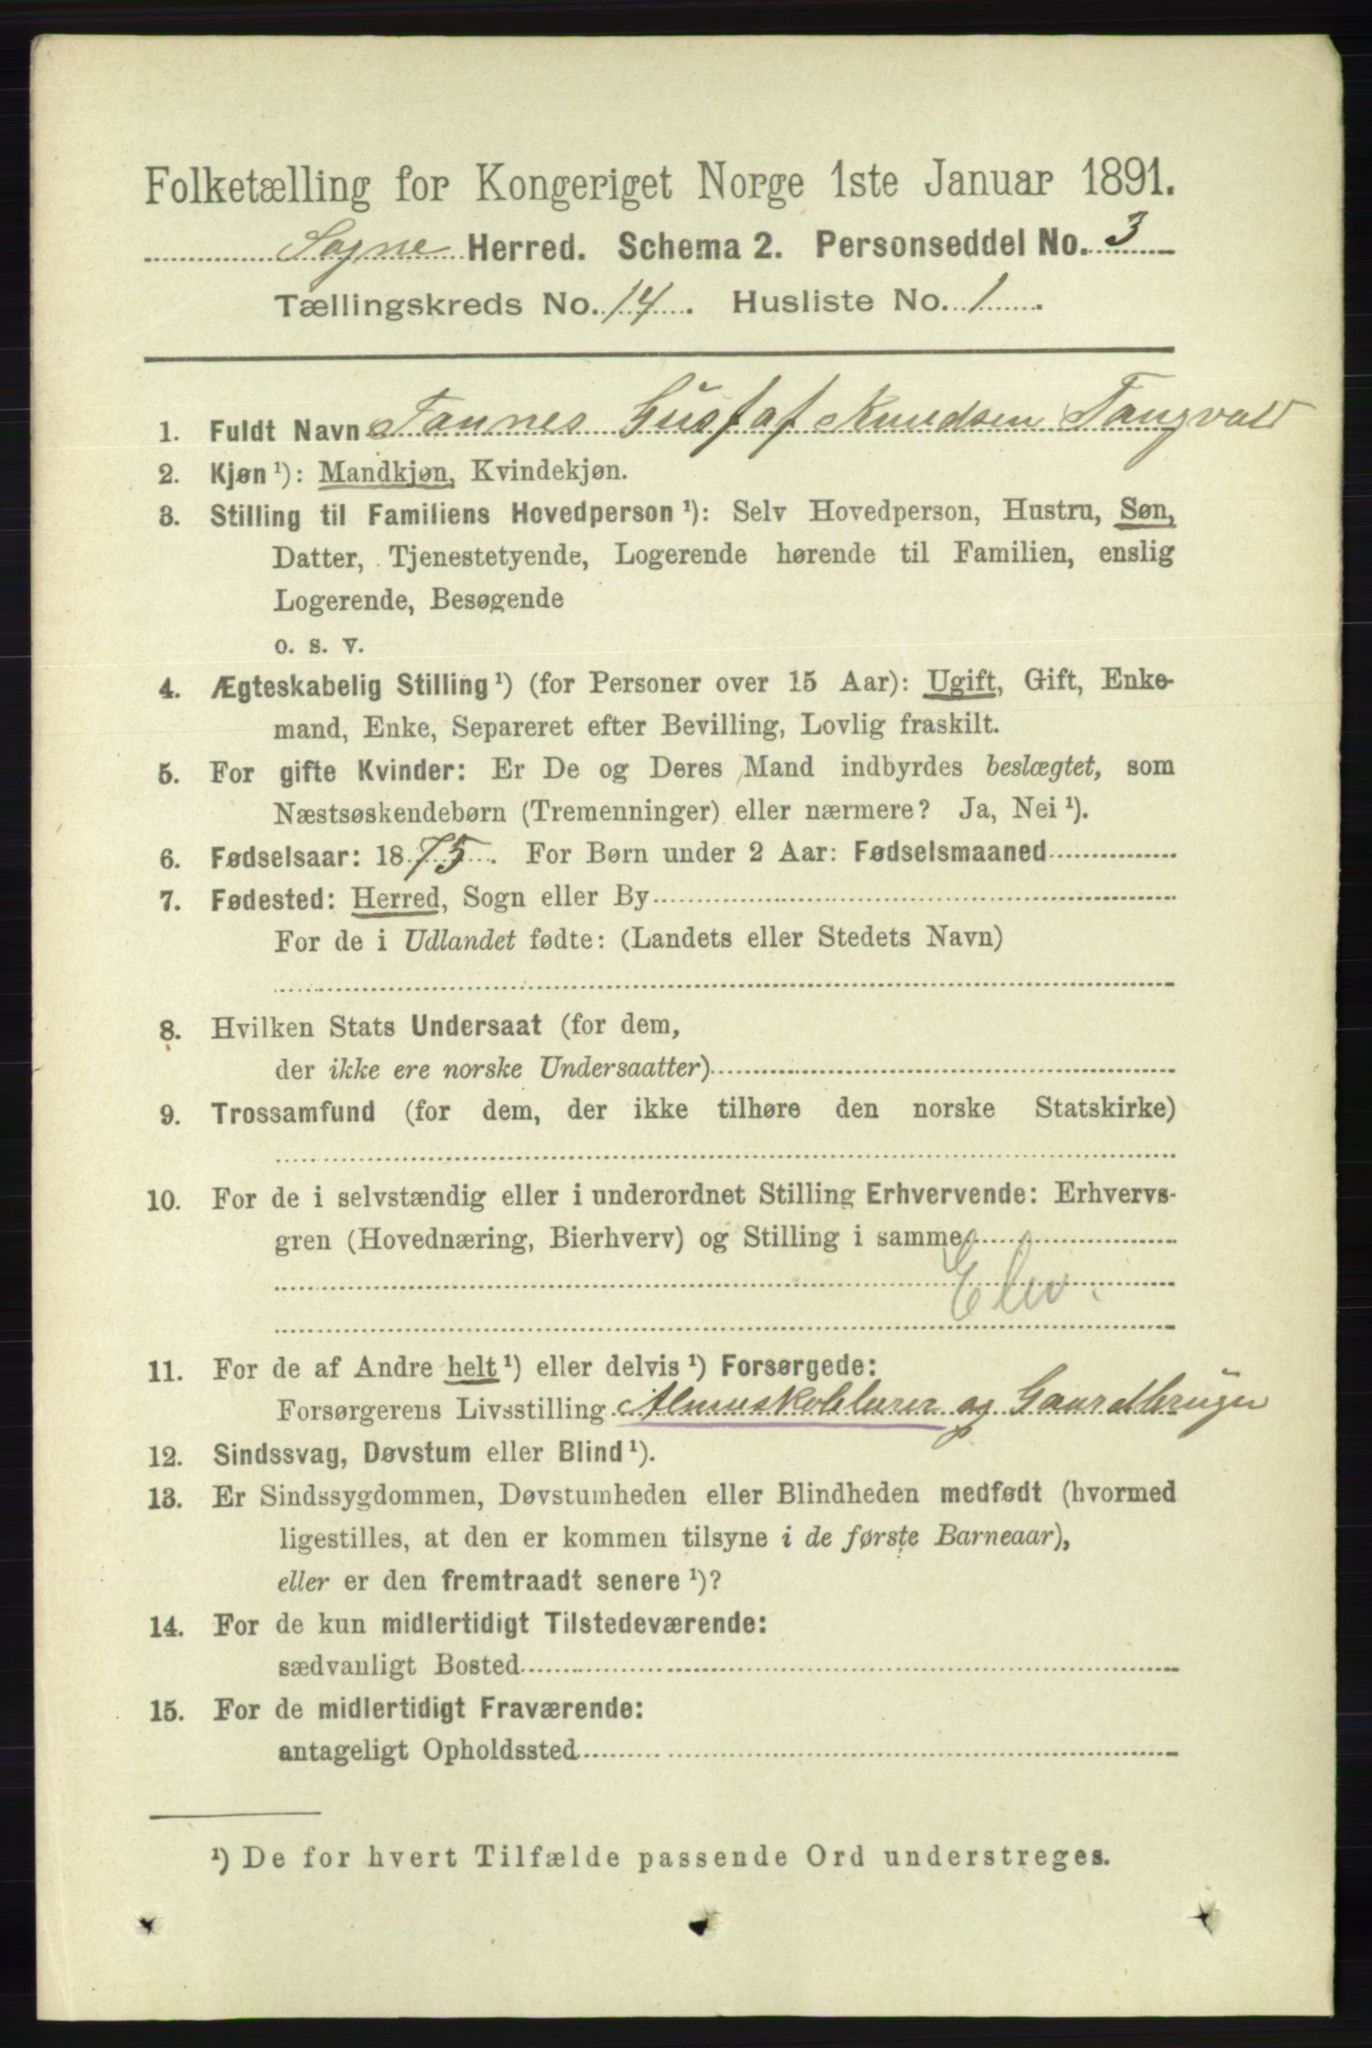 Folketælling for Kongeriget Norge 1ste Januar 1891.
Søgne Herred. Schema 2. Personseddel No. 3
Tællingskreds No. 14. Husliste No. 1
1. Fuldt Navn Tønnes Gustaf Knudsen Tangvald
2. Kjøn ¹): Mandkjøn, Kvindekjøn.
3. Stilling til Familiens Hovedperson ¹): Selv Hovedperson, Hustru, Søn,
Datter, Tjenestetyende, Logerende hørende til Familien, enslig
Logerende, Besøgende
o. s. v.
4. Ægteskabelig Stilling ¹) (for Personer over 15 Aar): Ugift, Gift, Enke-
mand, Enke, Separeret efter Bevilling, Lovlig fraskilt.
5. For gifte Kvinder: Er De og Deres Mand indbyrdes beslægtet, som
Næstsøskendebørn (Tremenninger) eller nærmere? Ja, Nei ¹).
6. Fødselsaar: 1875. For Børn under 2 Aar: Fødselsmaaned
7. Fødested: Herred, Sogn eller By
For de i Udlandet fødte: (Landets eller Stedets Navn)
8. Hvilken Stats Undersaat (for dem,
der ikke ere norske Undersaatter)
9. Trossamfund (for dem, der ikke tilhøre den norske Statskirke)
10. For de i selvstændig eller i underordnet Stilling Erhvervende: Erhvervs-
gren (Hovednæring, Bierhverv) og Stilling i samme
Elev.
11. For de af Andre helt ¹) eller delvis ¹) Forsørgede:
Forsørgerens Livsstilling Almueskolelærer og Gaardbruger
12. Sindssvag, Døvstum eller Blind ¹).
13. Er Sindssygdommen, Døvstumheden eller Blindheden medfødt (hvormed
ligestilles, at den er kommen tilsyne i de første Barneaar),
eller er den fremtraadt senere ¹)?
14. For de kun midlertidigt Tilstedeværende:
sædvanligt Bosted
15. For de midlertidigt Fraværende:
antageligt Opholdssted
¹) De for hvert Tilfælde passende Ord understreges.